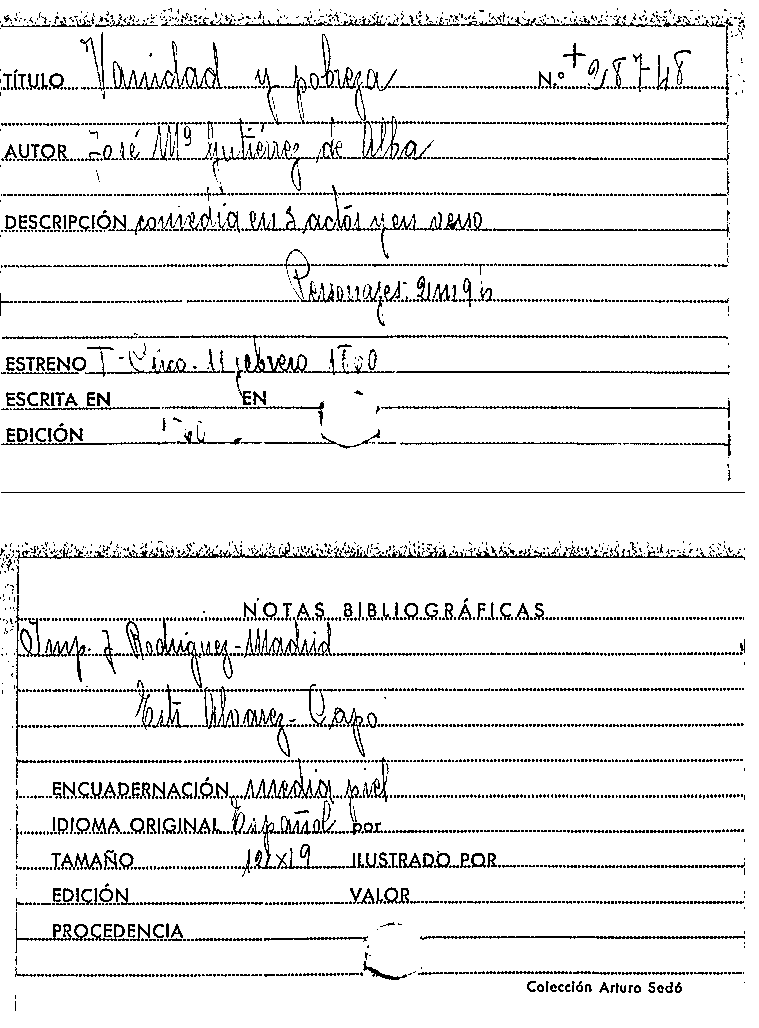 TÍTULO Vanidad y pobreza N.º + 28748
AUTOR José Mª Gutiérrez de Alba
DESCRIPCIÓN comedia en 3 actos y en verso
Personajes.
ESTRENO T- Circo. 11 febrero
ESCRITA EN EN
EDICIÓN
NOTAS BIBLIOGRÁFICAS
Imp. J Rodriguez - Madrid
Alvarez - Capo
ENCUADERNACIÓN media piel
IDIOMA ORIGINAL Español por
TAMAÑO 12x19 ILUSTRADO POR
EDICIÓN VALOR
PROCEDENCIA
Colección Arturo Sedó